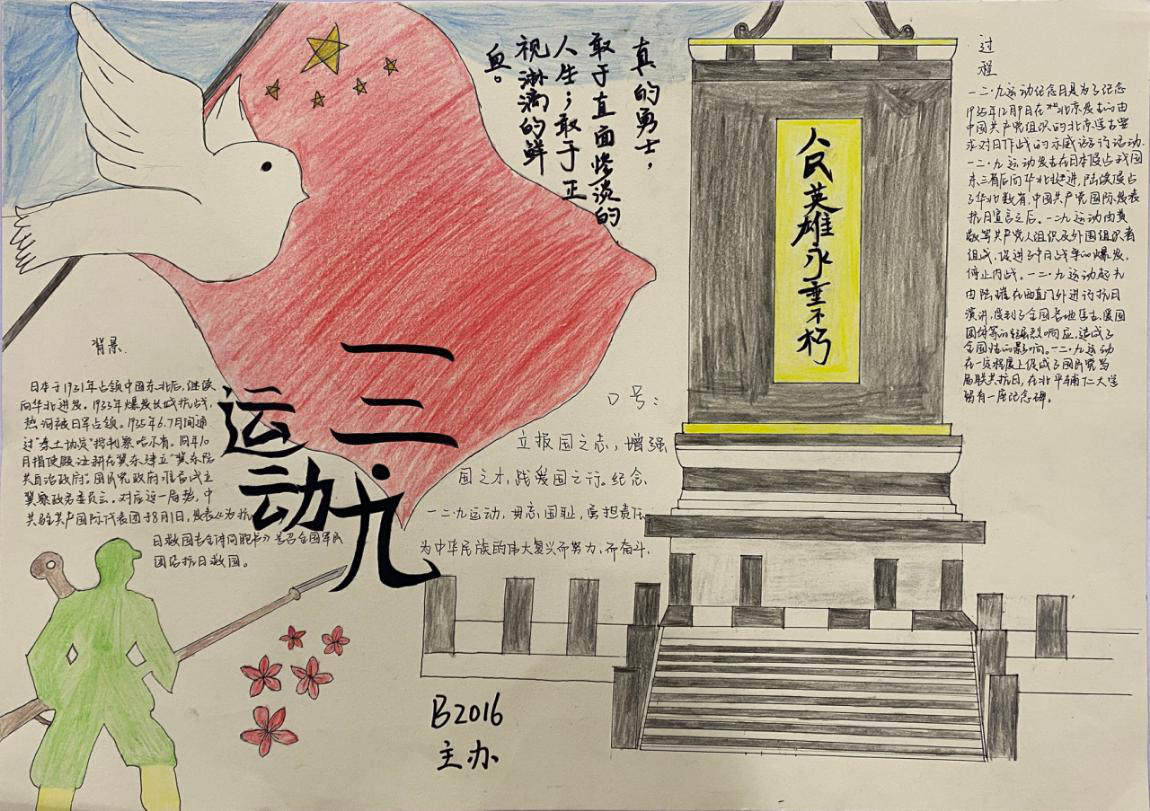 真的勇士，
敢于直面惨淡的
人生；敢于正
视淋漓的鲜
血。
人民英雄永垂不朽
过
程
一二·九运动纪念日是为了纪念
1935年12月9日在
中国共产党组织的北京
求对日作战的示威游行活动。
一二·九运动发生在日本侵占我国
东三省后向华北挺进，陆续侵占
了华北数省，中国共产党国际发表
抗日宣言之后。一二九运动由
数学共产党人组织及外围组织者
组成，促进了中日战争的爆发，
停止内战。一二·九运动
由陆璀在西直门外进行抗日
演讲，受到了全国各地
团体等的强烈响应，造成了
全国性的影响。一二·九运动
在一定程度上促成了国民党与
局联共抗日，在北平辅仁大学
另有一座纪念碑。
背景
日本于1931年占领中国东北后，继续
向华北进发。1933年爆发长城抗战，
热河被日军占领。1935年6.7月间通
过"秦土协定"将
月指使殷汝耕在冀东建立"冀东防
共自治政府"。国民党政府准备成立
冀察政务委员会。对应这一局势，中
共驻共产国际代表团于8月1日，发表《为抗
日救国告全体同胞书》号召全国军民
团结抗日救国。
一二九
运动
口号：
立报国之志，增强
国之才，践爱国之行。纪念
一二·九运动，毋忘国耻，勇担责任
为中华民族的伟大复兴而努力，而奋斗。
B2016
主办